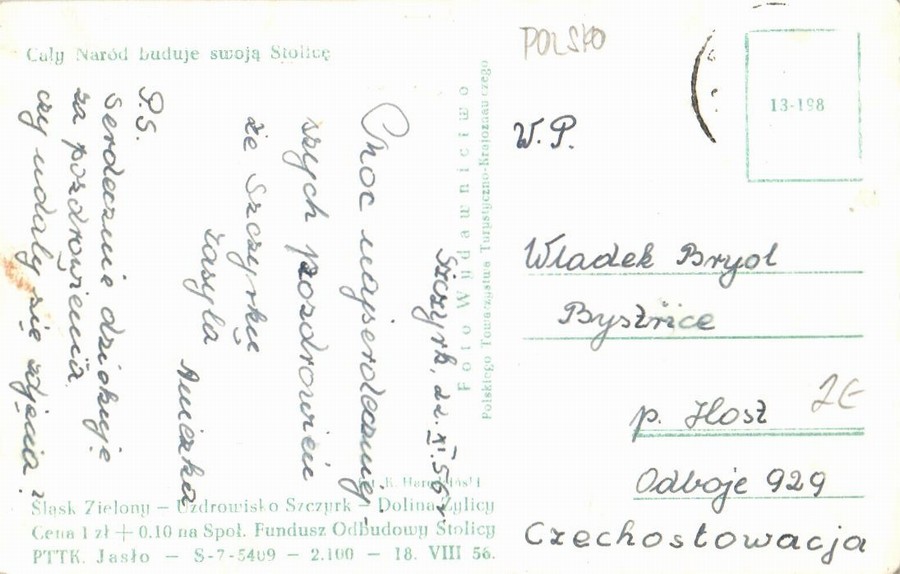 Cały Naród buduje swoją Stolicę
Szczyrk, 22. XI. 56 r.
Moc najserdeczniej-
szych pozdrowień
ze Szczyrku
zasyła
Aniczka
P.S.
Serdecznie dziękuję
za pozdrowienia
czy udały się zdjęcia?
Foto Wydawnictwo
Polskiego Towarzystwa Turystyczno-Krajoznawczego
POLSKO
13-198
W.P.
Władek Bryol
Bystrzice
p. Hosz
2E
Odboje 929
Czechosłowacja
Śląsk Zielony — Uzdrowisko Szczyrk — Dolina Żylicy
Cena 1 zł + 0.10 na Społ. Fundusz Odbudowy Stolicy
PTTK. Jasło — S-7-5409 — 2.100 — 18. VIII 56.